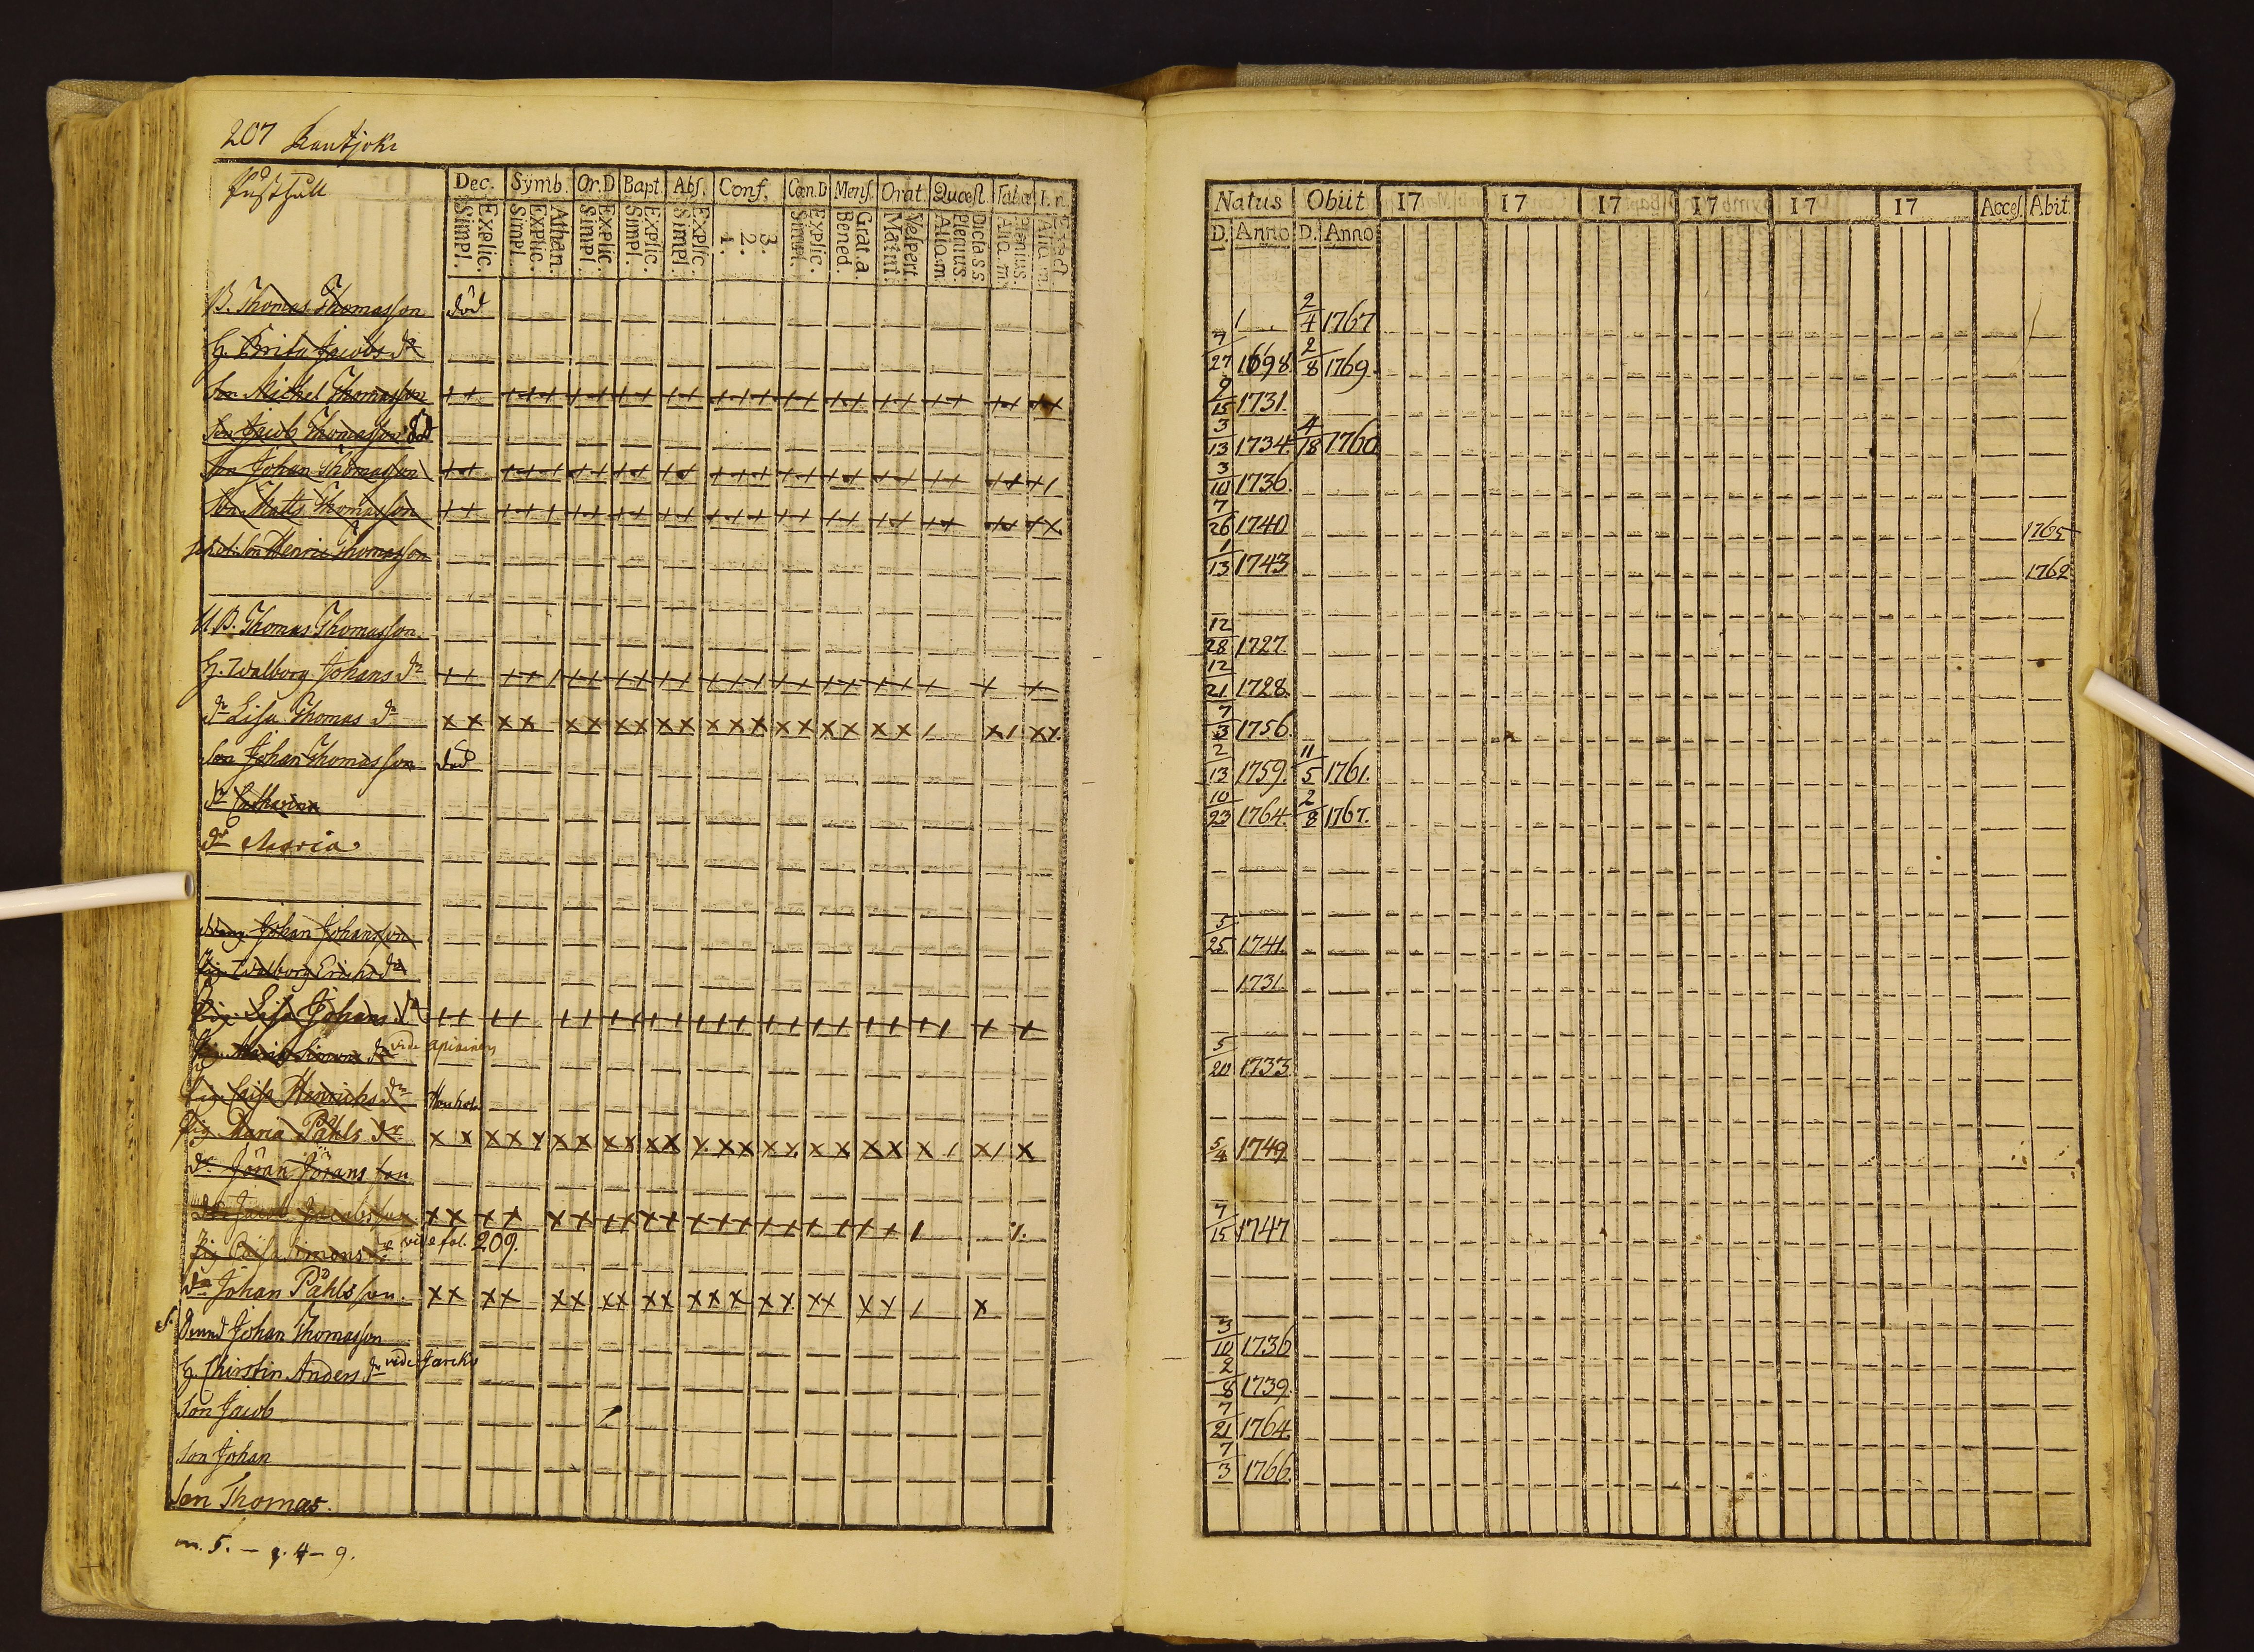 207 Kantjoki
Dec. Symb. Or.D Bapt. Abs. Conf. Cœn.D Mens. Orat. Quæst. Tab.œ I.n.
Simpl. Explic. Simpl. Explic. Athan. Simpl. Explic. Simpl. Explic. Simpl. Explic. 1. 2. 3. Simpl. Explic. Bened. Grat.a. Matut. Vespert. Aliq.m. Plenius. Dicta.s.s. Aliq.m. Plenius.
B. Thomas Thomasson död
H. Brita Jacobs dr
Son Michel Thomasson
Son Jacob Thomasson död
Son Johan Thomasson
Son Matts Thomasson
Son Henric Thomasson
B. Thomas Thomasson
H. Walborg Johans dr
dr Lisa Thomas dr
Son Johan Thomasson död
dr Catharina
dr Maria
Johan Johansson
Pig. Walborg Erichs dr
Pig. Lisa Johans dr
Pig. Maria Simons dr vide
Pig. Caisa Henrichs dr
Pig Maria Påhls dr
dr. Jöran Jörans son
Jacob Jacobsson
Pig Simons dr vide fol. 209.
dr. Johan Påhls son.
Johan Thomasson
H. Chirstin Anders dr vide
Son Jacob
Son Johan
Son Thomas.
m. 5. - q. 4 - 9.
Natus Obiit 17 17 17 17 17 17 Acces. Abit.
D. Anno D. Anno
2/4 1767
7/27 1698. 2/8 1769.
9/15 1731.
3/13 1734 4/18 1760
3/10 1736.
7/26 1740 1765
1/13 1743 1762
12/28 1727
12/21 1728.
7/3 1756.
2/13 1759. 11/5 1761.
10/23 1764. 2/8 1767.
5/25 1741.
1731.
5/20 1733.
5/4 1749
7/15 1747
3/10 1736
2/8 1739.
7/21 1764
7/3 1766.